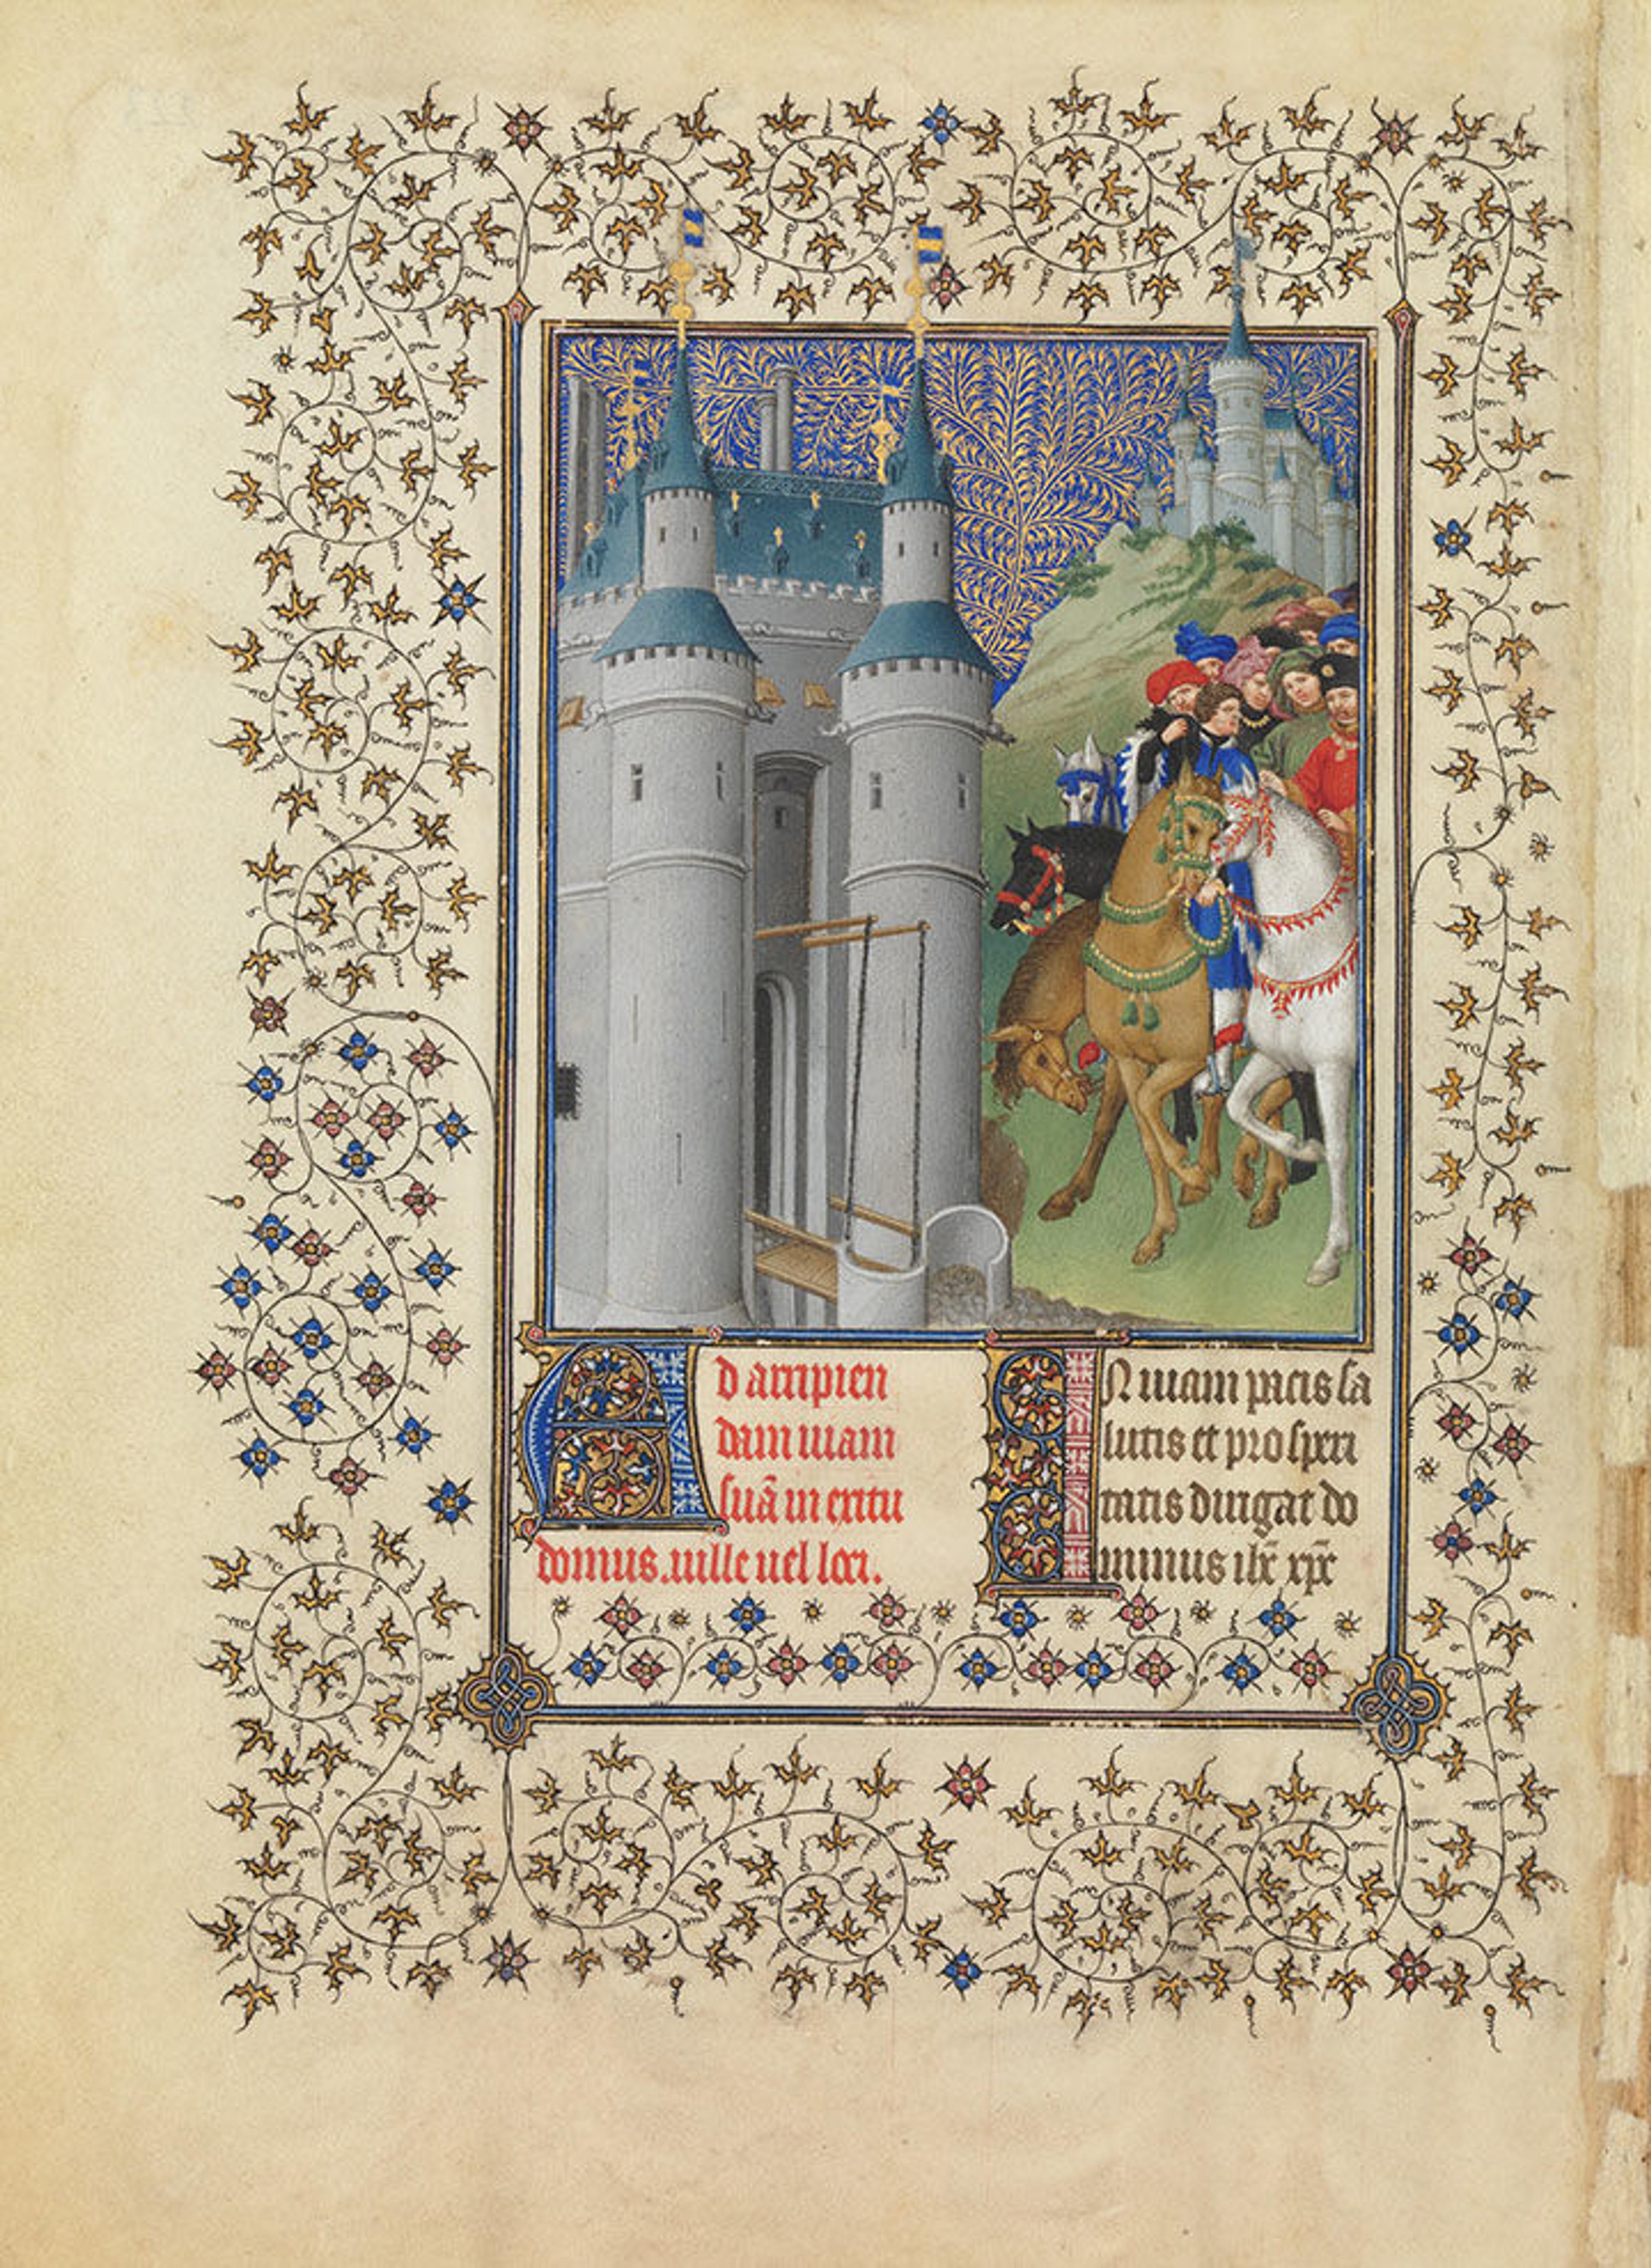 Ad arripien
dam uiam
suā in exitu
domus. uille uel loci.
IN uiam pacis sa
lutis et prosperi
tatis dirigat do
minus ihc̄ xp̄c